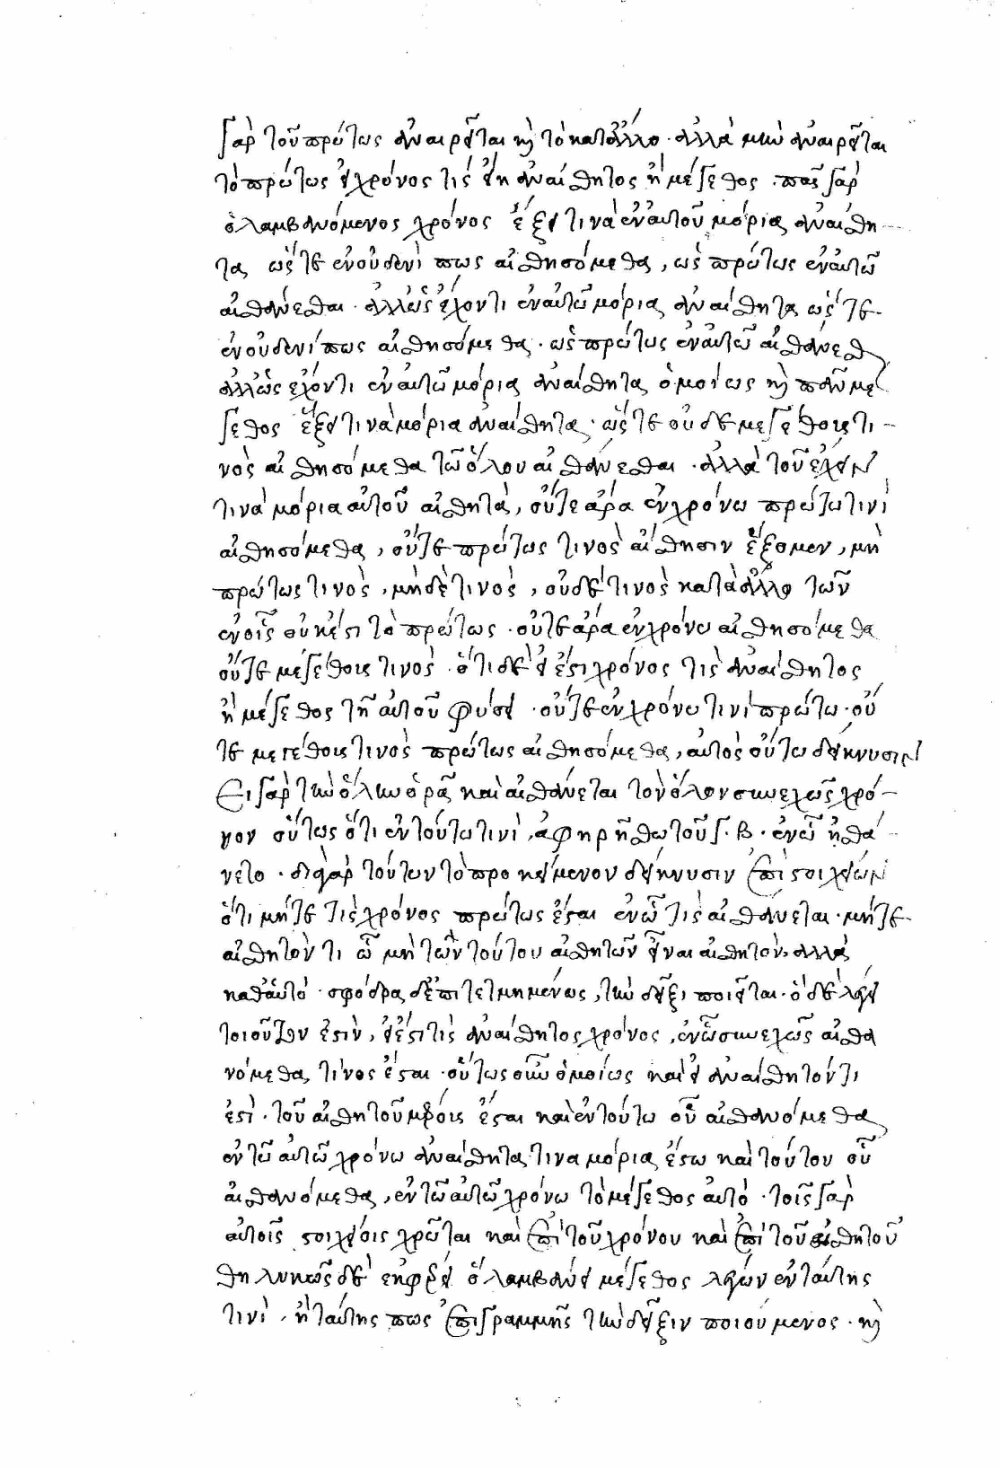 γὰρ τοῦ πρώτως ἀναιρεῖται καὶ τὸ κατ' ἄλλο · ἀλλὰ μὴν ἀναιρεῖται
τὸ πρώτως εἰ χρόνος τίς εἴη ἀναίσθητος ἢ μέγεθος · πᾶς γὰρ
ὁ λαμβανόμενος χρόνος ἕξει τινὰ ἐν αὐτοῦ μόρια ἀναίσθη-
τα ὥστε ἐν οὐδενί πως αἰσθησόμεθα, ὡς πρώτως ἐν αὐτῶ
αἰσθάνεσθαι · ἀλλ' ὡς ἔχοντι ἐν αὐτῶ μόρια ἀναίσθητα ὥστε
ἐν οὐδενί πως αἰσθησόμεθα · ὡς πρώτως ἐν αὐτῶ αἰσθάνεσθαι
ἀλλ' ὡς ἔχοντι ἐν αὐτῶ μόρια ἀναίσθητα ὁμοίως καὶ πᾶν μέ
γεθος ἕξει τινὰ μόρια ἀναίσθητα · ὥστε οὐδὲ μεγέθους τι-
νὸς αἰσθησόμεθα τῶ ὅλου αἰσθάνεσθαι · ἀλλὰ τοῦ ἔχειν
τινὰ μόρια αὐτοῦ αἰσθητὰ, οὔτε ἄρα ἐν χρόνω πρώτω τινὶ
αἰσθησόμεθα, οὔτε πρώτως τινὸς αἴσθησιν ἕξομεν, μὴ
πρώτως τινὸς, μηδὲ τινὸς, οὐδέ τινος κατὰ ἄλλο τῶν
ἐν οἷς οὐκέτι τὸ πρώτως · οὔτε ἄρα ἐν χρόνω αἰσθησόμεθα
οὔτε μεγέθους τινός · ὅτι δὲ εἰ ἔστι χρόνος τὶς ἀναίσθητος
ἢ μέγεθος τῆ αὐτοῦ φύσει · οὔτε ἐν χρόνω τινὶ πρώτω · οὔ
τε μεγέθους τινὸς πρώτως αἰσθησόμεθα, αὐτὸς οὕτω δείκνυσιν
Εἰ γὰρ τὴν ὅλην ὁρᾶ καὶ αἰσθάνεται τὸν ὅλον συνεχῶς χρό-
νον οὕτως ὅτι ἐν τούτω τινὶ, ἀφηρήσθω τοῦ γ · β · ἐν ὧ ἠσθά-
νετο · διὰ γὰρ τούτων τὸ προκείμενον δείκνυσιν ἐπὶ στοιχείων
ὅτι μήτε τὶς χρόνος πρώτως ἔσται ἐν ὧ τὶς αἰσθάνεται · μήτε
αἰσθητόν τι ὧ μὴ τῶν τούτου αἰσθητῶν εἶναι αἰσθητὸν, ἀλλὰ
καθ' αὑτό · σφόδρα δὲ ἐπιτετμημένως, τὴν δεῖξι ποιεῖται · ὁ δὲ λέγει
τοιοῦτον ἐστὶν, εἰ ἔστι τὶς ἀναίσθητος χρόνος, ἐν ὧ συνεχῶς αἰσθα
νόμεθα, τίνος ἔσται · οὕτως οὖν ὁμοίως καὶ εἰ ἀναίσθητόν τι
ἐστὶ · τοῦ αἰσθητοῦ μέρους ἔσται καὶ ἐν τούτω οὗ αἰσθανόμεθα
ἐν τῶ αὐτῶ χρόνω ἀναίσθητα τινα μόρια, ἔστω καὶ τούτου οὗ
αἰσθανόμεθα, ἐν τῶ αὐτῶ χρόνω τὸ μέγεθος αὐτὸ · τοῖς γὰρ
αὐτοῖς στοιχείοις χρῆται καὶ ἐπὶ τοῦ χρόνου καὶ ἐπὶ τοῦ αἰσθητοῦ
θηλυκῶς δὲ ἐκφέρει ὃ λαμβάνει μέγεθος λέγων ἐν ταύτης
τινὶ, ἢ ταύτης πως ἐπὶ γραμμῆς τὴν δεῖξιν ποιούμενος · καὶ